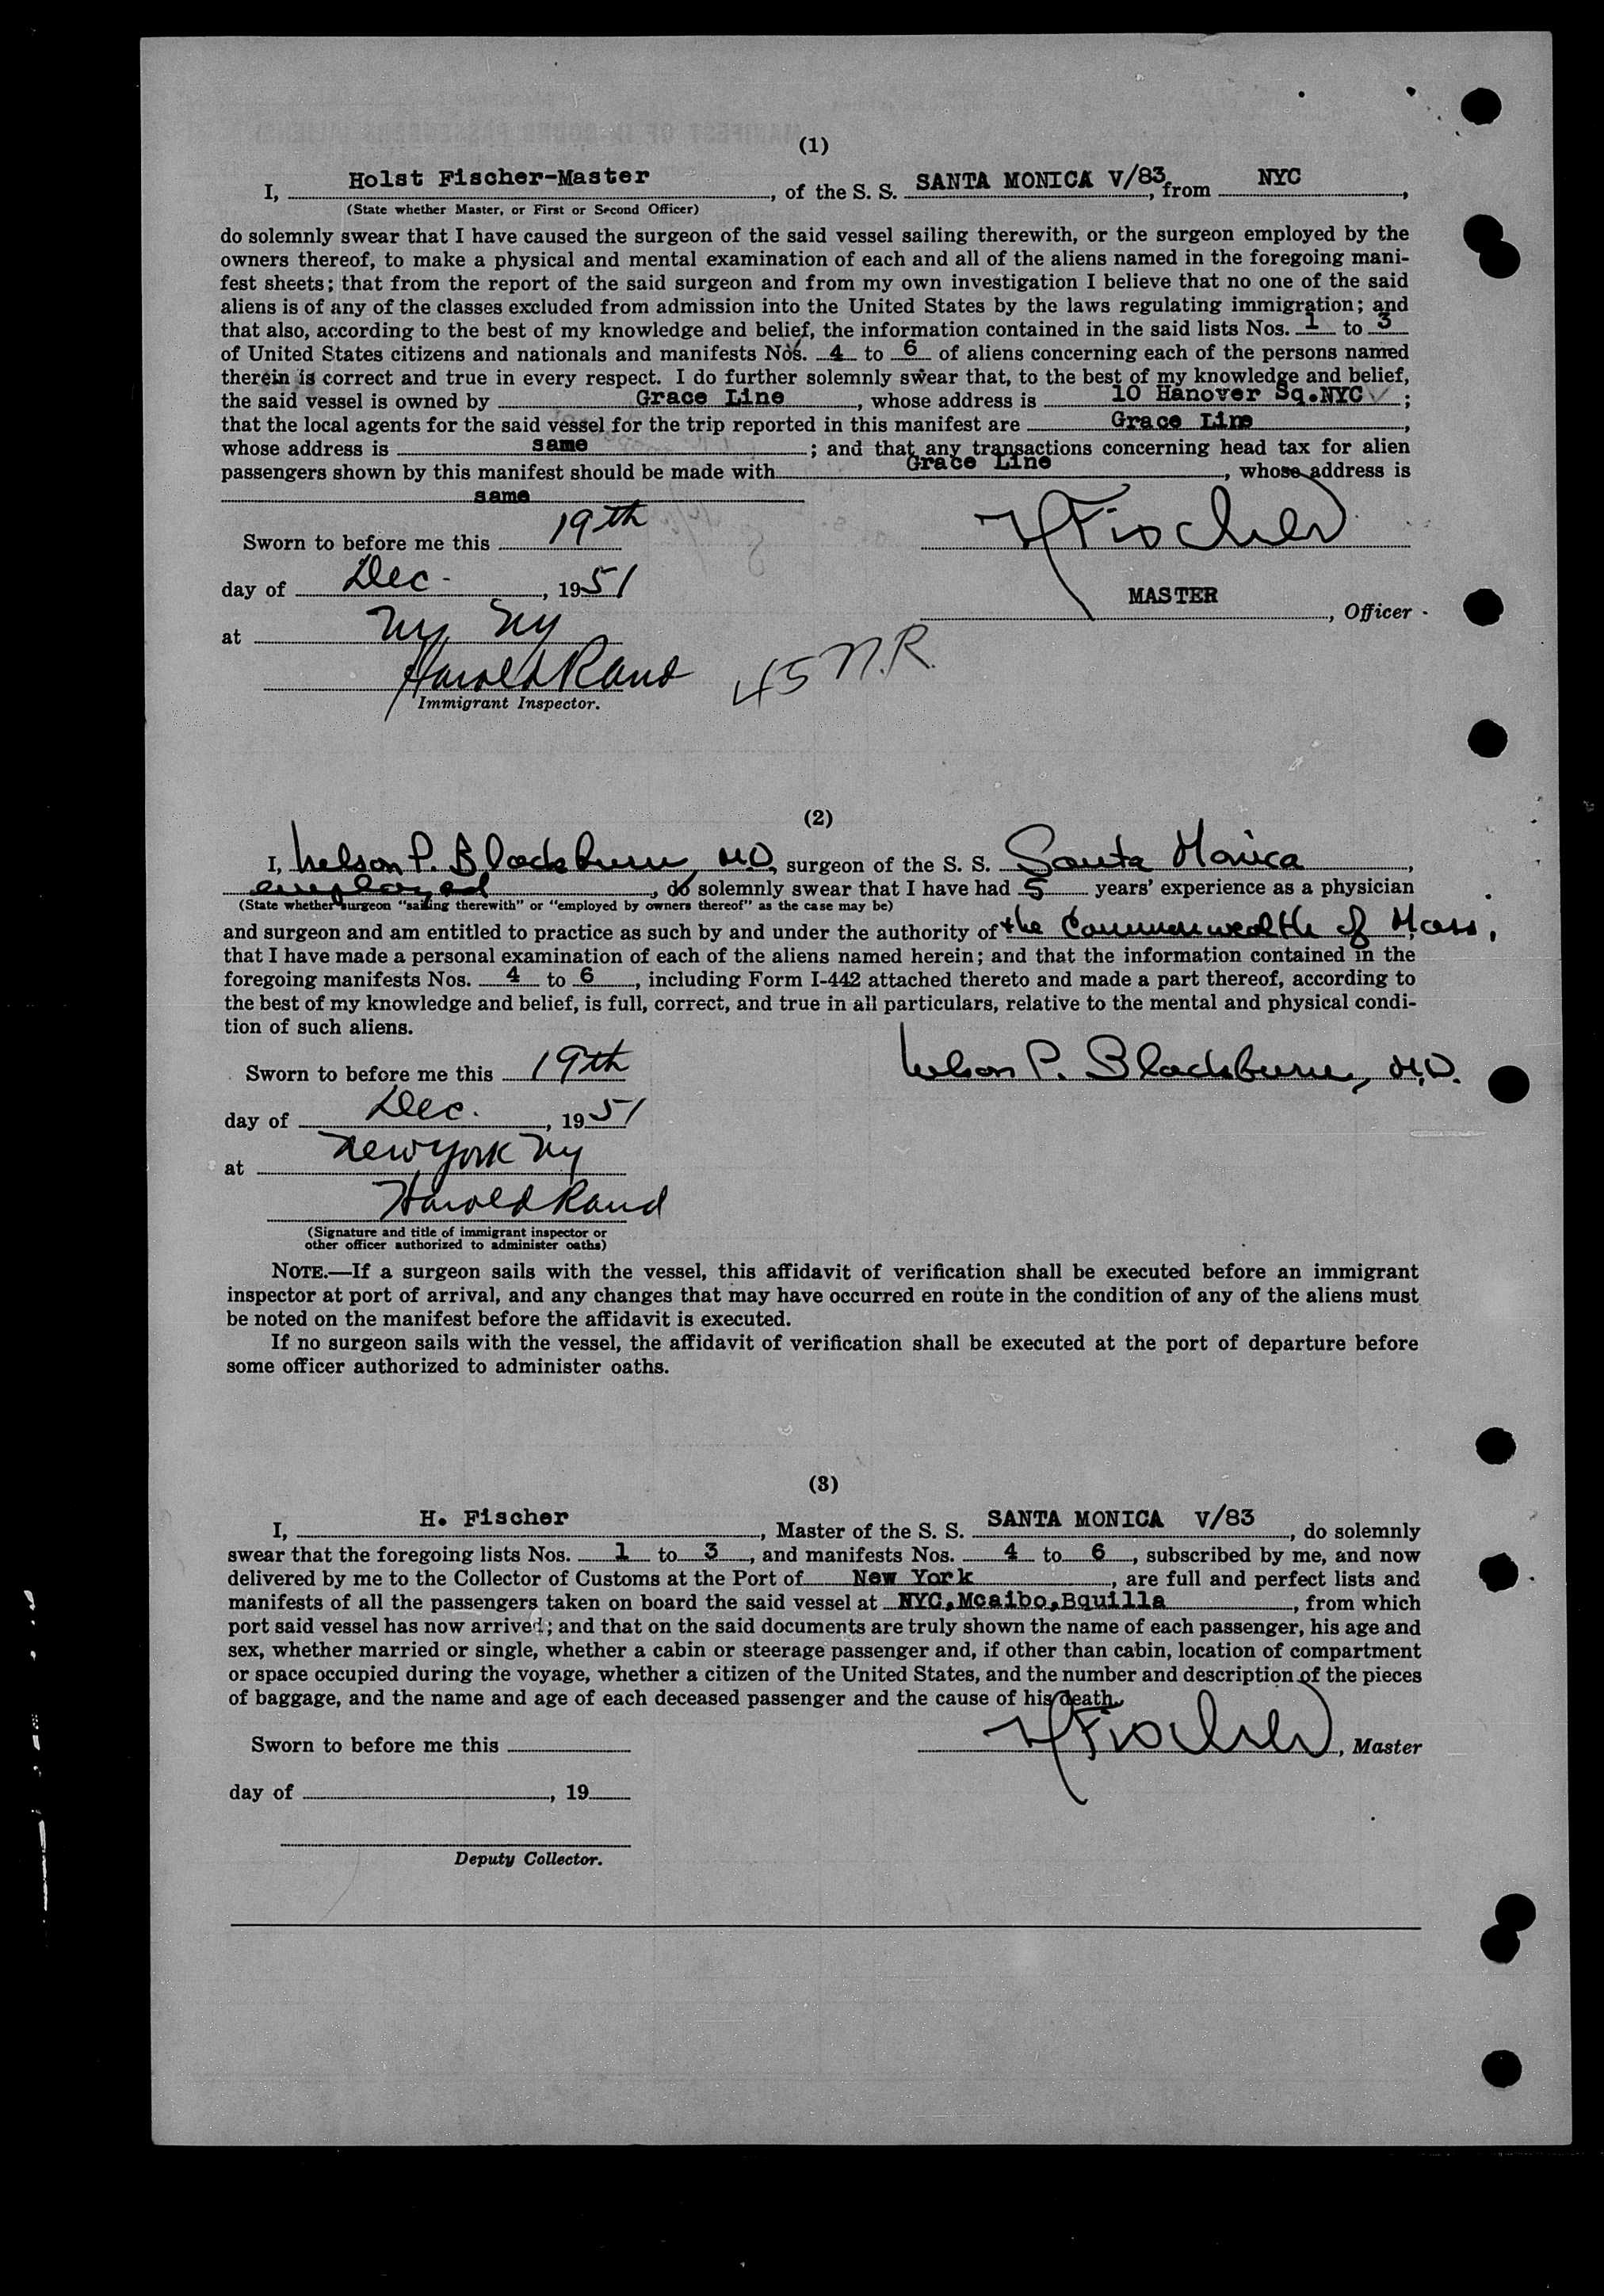 (1)
I, Holst Fischer-Master, of the S. S. SANTA MONICA V/83, from NYC,
(State whether Master, or First or Second Officer)
do solemnly swear that I have caused the surgeon of the said vessel sailing therewith, or the surgeon employed by the
owners thereof, to make a physical and mental examination of each and all of the aliens named in the foregoing mani-
fest sheets; that from the report of the said surgeon and from my own investigation I believe that no one of the said
aliens is of any of the classes excluded from admission into the United States by the laws regulating immigration; and
that also, according to the best of my knowledge and belief, the information contained in the said lists Nos. 1 to 3
of United States citizens and nationals and manifests Nos. 4 to 6 of aliens concerning each of the persons named
therein is correct and true in every respect. I do further solemnly swear that, to the best of my knowledge and belief,
the said vessel is owned by Grace Line, whose address is 10 Hanover Sq.NYC;
that the local agents for the said vessel for the trip reported in this manifest are Grace Line,
whose address is same; and that any transactions concerning head tax for alien
passengers shown by this manifest should be made with Grace Line, whose address is
same
Sworn to before me this 19th
H Fischer
day of Dec., 1951
MASTER, Officer.
at NY NY
Harold Rand
45 N.R.
Immigrant Inspector.
(2)
I, Nelson P. Blackburn M.D, surgeon of the S. S. Santa Monica,
employed, do solemnly swear that I have had 5 years' experience as a physician
(State whether surgeon "sailing therewith" or "employed by owners thereof" as the case may be)
and surgeon and am entitled to practice as such by and under the authority of the Commonwealth of Mass,
that I have made a personal examination of each of the aliens named herein; and that the information contained in the
foregoing manifests Nos. 4 to 6, including Form I-442 attached thereto and made a part thereof, according to
the best of my knowledge and belief, is full, correct, and true in all particulars, relative to the mental and physical condi-
tion of such aliens.
Sworn to before me this 19th
Nelson P. Blackburn, M.D.
day of Dec., 1951
at New York NY
Harold Rand
(Signature and title of immigrant inspector or
other officer authorized to administer oaths)
NOTE.—If a surgeon sails with the vessel, this affidavit of verification shall be executed before an immigrant
inspector at port of arrival, and any changes that may have occurred en route in the condition of any of the aliens must
be noted on the manifest before the affidavit is executed.
If no surgeon sails with the vessel, the affidavit of verification shall be executed at the port of departure before
some officer authorized to administer oaths.
(3)
I, H. Fischer, Master of the S. S. SANTA MONICA V/83, do solemnly
swear that the foregoing lists Nos. 1 to 3, and manifests Nos. 4 to 6, subscribed by me, and now
delivered by me to the Collector of Customs at the Port of New York, are full and perfect lists and
manifests of all the passengers taken on board the said vessel at NYC,Mcaibo,Bquilla, from which
port said vessel has now arrived; and that on the said documents are truly shown the name of each passenger, his age and
sex, whether married or single, whether a cabin or steerage passenger and, if other than cabin, location of compartment
or space occupied during the voyage, whether a citizen of the United States, and the number and description of the pieces
of baggage, and the name and age of each deceased passenger and the cause of his death.
Sworn to before me this
H Fischer, Master
day of , 19
Deputy Collector.